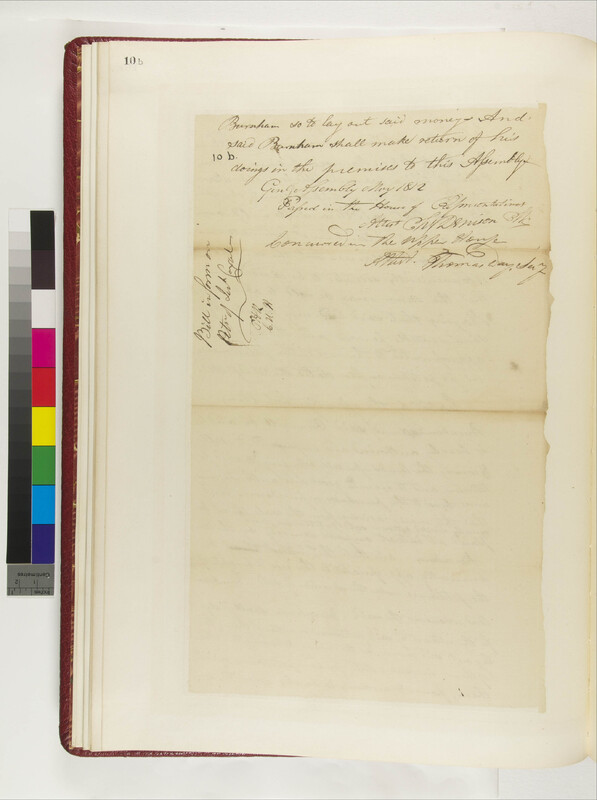 10b
Burnham so to lay out said money & And
said Burnham shall make return of his
10 b.
doings in the premises to this Assembly
Genl Assembly May 1812
Passed in the House of Representatives
Attest Denison Clk
Concurred in the Upper House
Attest. Thomas Day, Secy
Bill in form on
Petn of